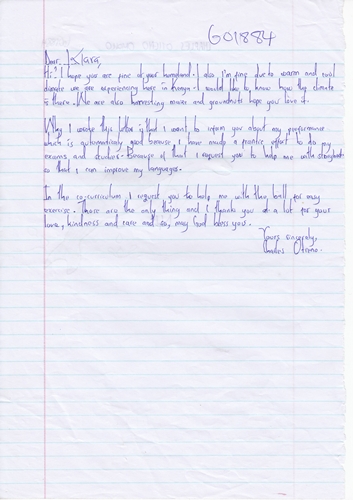 G01884
Dear, Klara,
Hi? I hope you are fine at your homeland. I also I'm fine due to warm and
climate we are experiencing here in Kenya. I would like to know how the climate
is there. We are also harvesting maize and groundnuts hope you love it.
Why I wrote this letter is that I want to inform you about my performance
which is automatically good because I have made a effort to do my
exams and studies. Because of that I request you to help me with storybooks
so that I can improve my languages.
In the co-curriculum I request you to help me with the ball for my
exercise. Those are the only thing and I thank you a lot for your
love, kindness and care and so, may God bless you.
Yours sincerely,
Otieno.